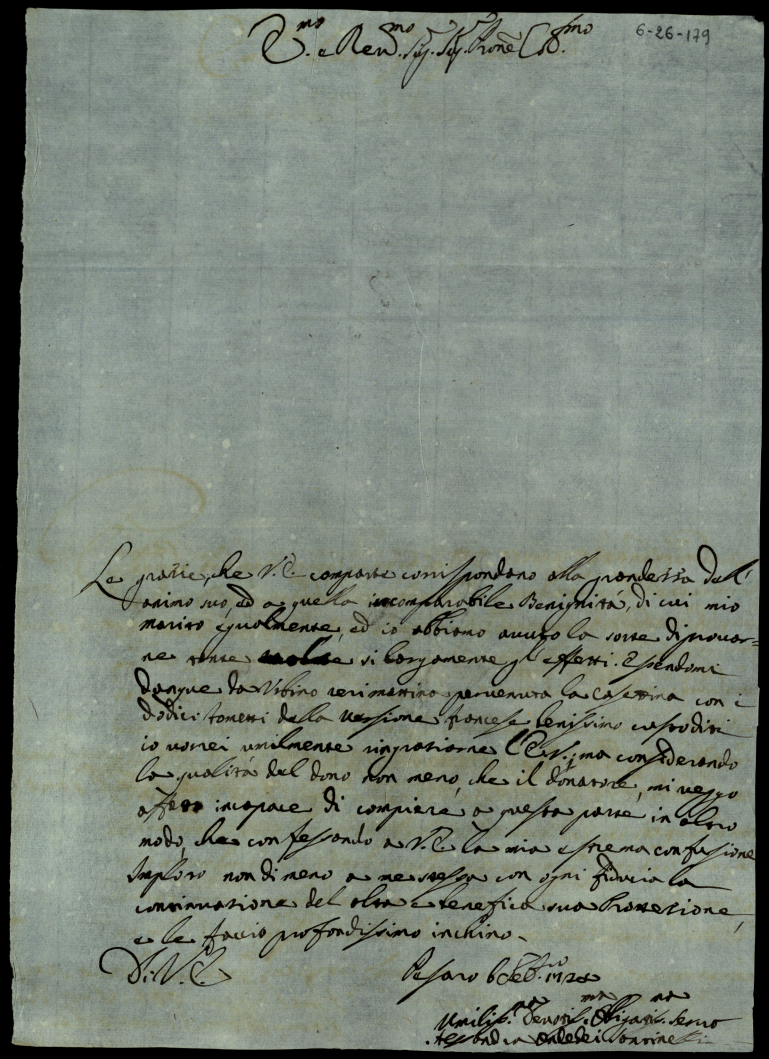 6-26-179
E.mo e Rev.mo Sig. Sig. Prone Col.mo
Le grazie, che V. E. comparte corrispondano alla grandezza dell'
animo suo, ed a quella incomparabile Benignità, di cui mio
marito egualmente, ed io abbiamo avuto la sorte di provar=
ne tante si largamente gl'effetti. Essendomi
dunque da Urbino ieri mattina pervenuta la Cassettina con i
dodici tometti della versione francese benissimo custoditi
io vorrei umilmente ringraziarne l'E. V., ma considerando
la qualità del dono non meno, che il donatore, mi veggo
affatto incapace di compiere a questa parte in altro
modo, che confessando a V. E. la mia estrema confusione
Imploro non di meno a me stessa con ogni fiducia la
continuazione del alta e benefica sua Protezione,
e le faccio profondissimo inchino.
Di V. E.
Pesaro 6
Umilis.ma Devotis.ma Obligatis.ma Serva